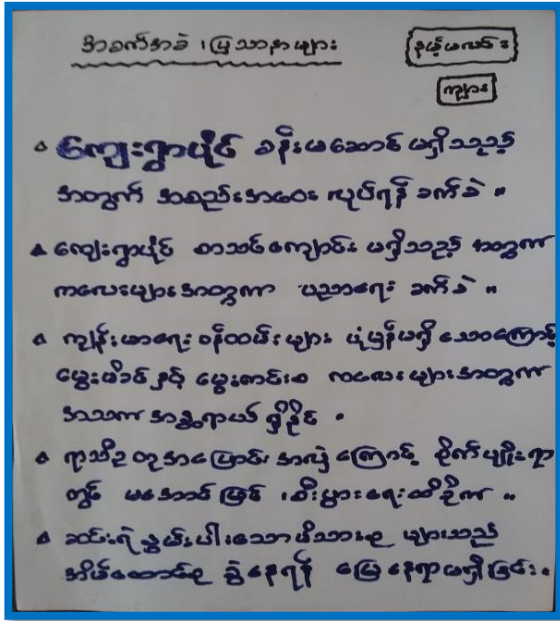 အခက်အခဲ ၊ ပြဿနာများ
နယ့်မလင်း
ကျား
ကျေးရွာပိုင် ခန်းမဆောင် မရှိသည့်
အတွက် အစည်းအဝေး လုပ်ရန် ခက်ခဲ ။
ကျေးရွာပိုင် စာသင်ကျောင်း မရှိသည့် အတွက်
ကလေးများအတွက် ပညာရေး ခက်ခဲ ။
ကျန်းမာရေး ဝန်ထမ်းများ ပုံမှန်မရှိသောကြောင့်
မွေးမိခင် နှင့် မွေးကင်းစ ကလေးများအတွက်
အသက် အန္တရာယ် ရှိနိုင် ။
ရာသီဥတုအပြောင်း အလဲ ကြောင့် စိုက်ပျိုးရာ
တွင် မအောင်မြင် ၊ စီးပွားရေးထိခိုက် ။
ဆင်းရဲ နွမ်းပါးသောမိသားစု များသည်
အိမ်ထောင်စု ခွဲနေရန် မြေနေရာမရှိခြင်း ။